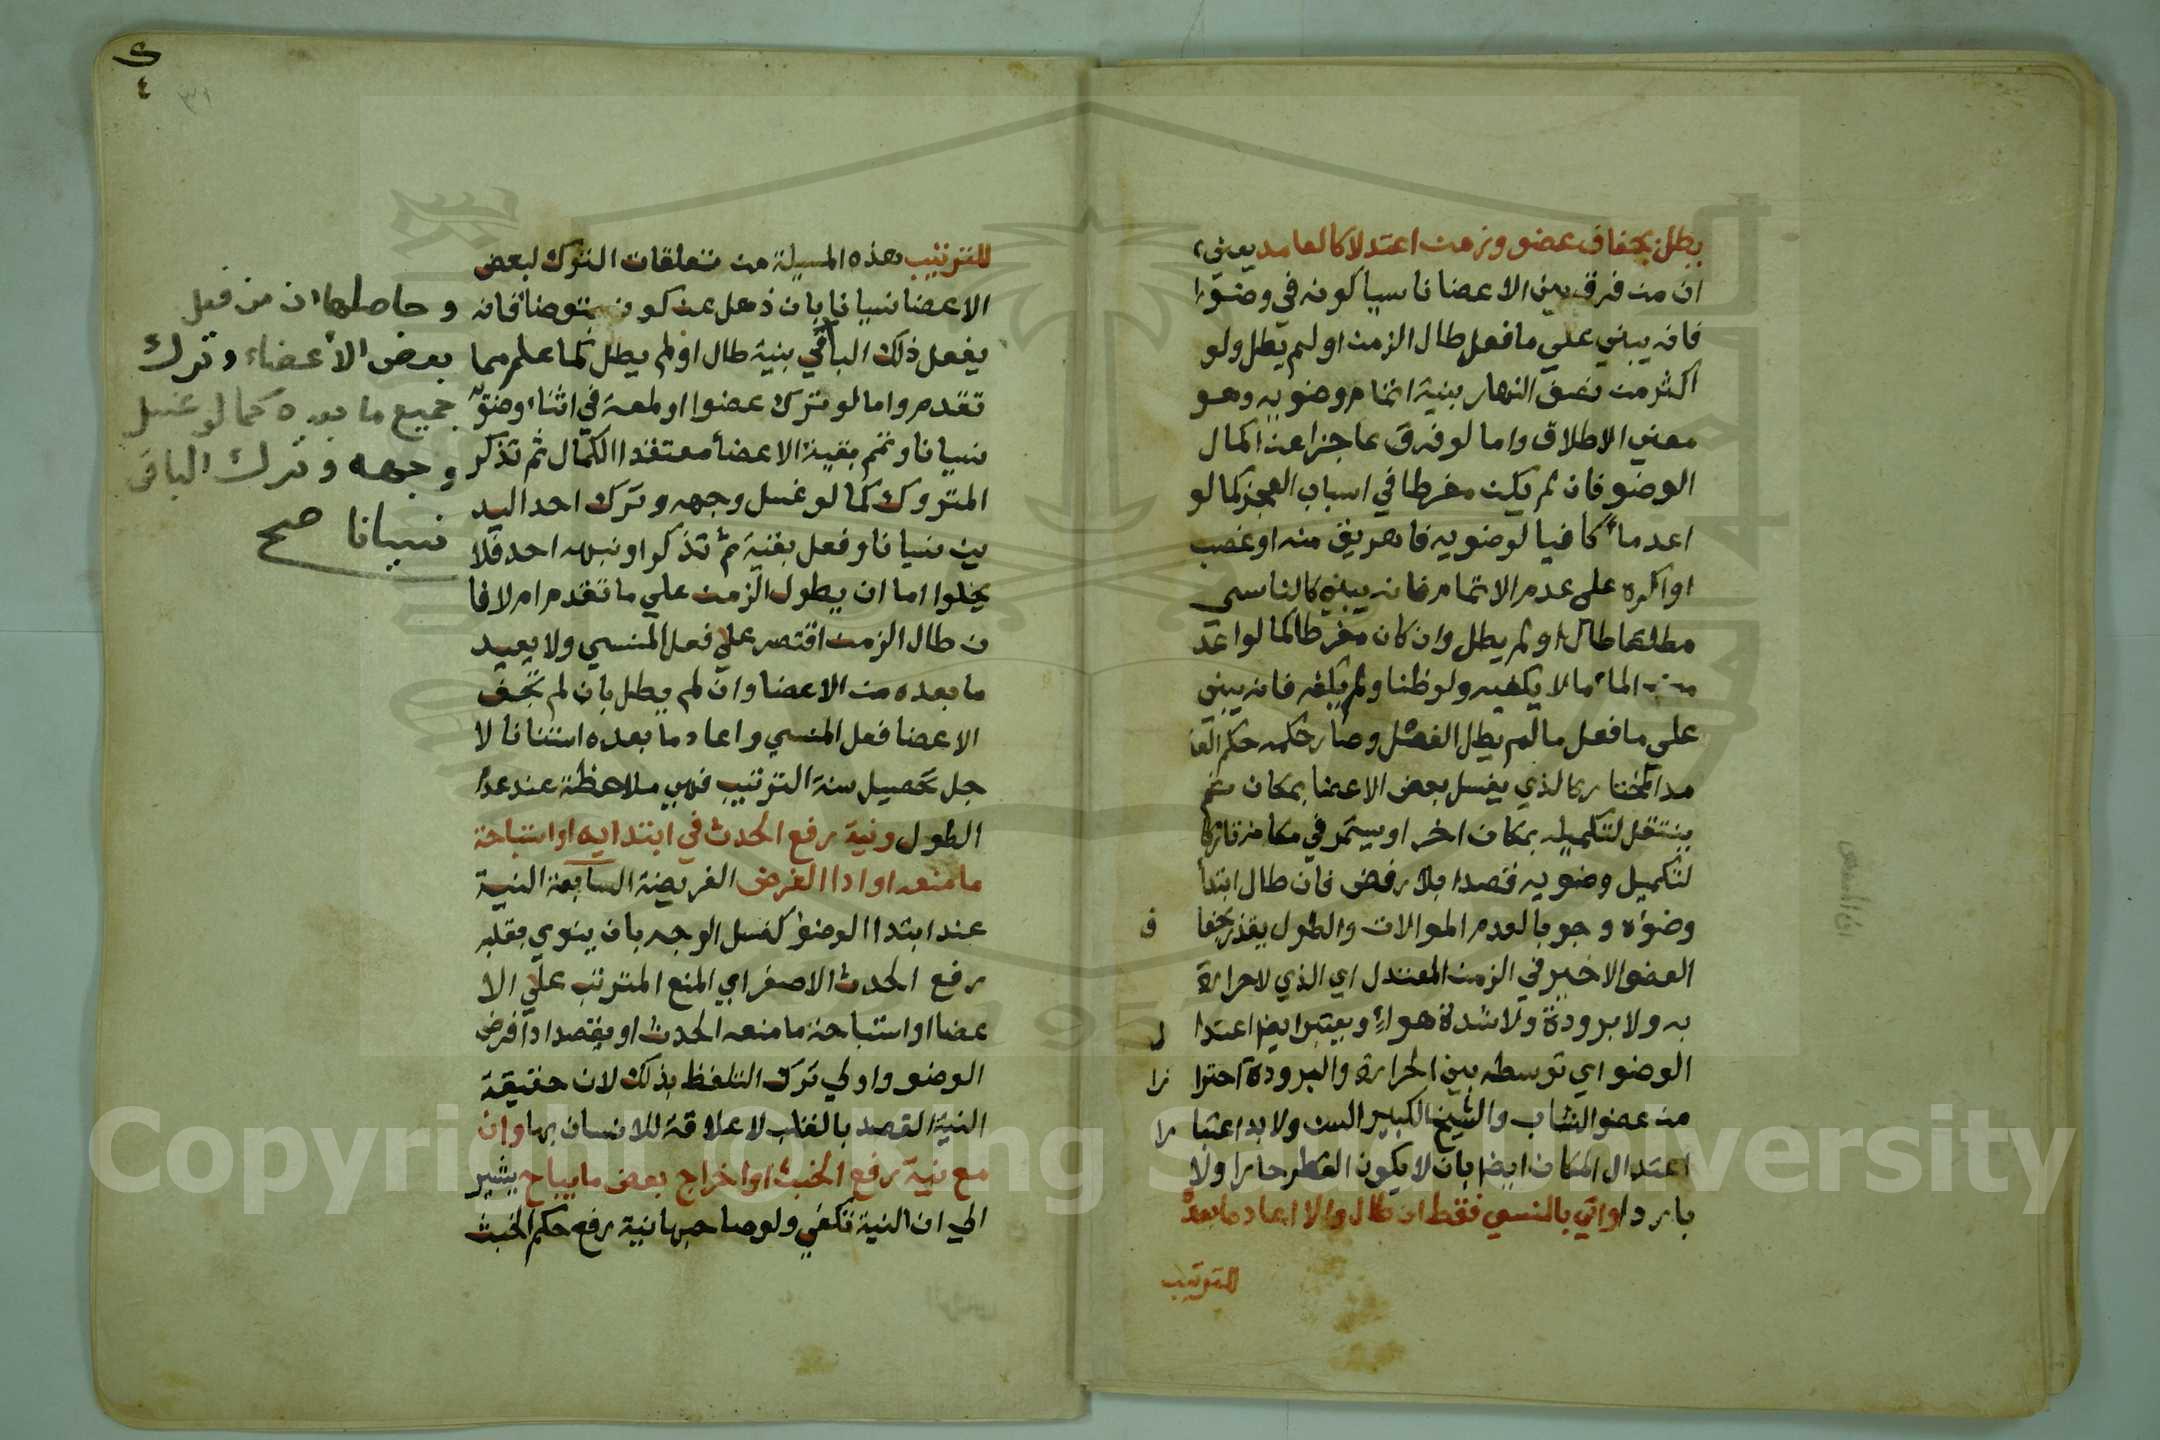 يطل بجفاف عضو وزمن اعتدلا كالعامد يعني
ان من فرق بين الاعضا ناسيا كونه في وضوءا
فانه يبني علي ما فعل طال الزمن اولم يطل ولو
اكثر من نصف النهار بنية اتمام وضويه وهو
معني الاطلاق واما لو فرق عاجزا عن اكمال
الوضو فان لم يكن مفرطا في اسباب العجز كما لو
اعد ماء كافيا لوضويه فاهريق منه او غصب
او اكره علي عدم الاتمام فانه يبني كالناسي
مطلقا طال او لم يطل وان كان مفرطا كما لو اعد
من الماء ما لا يكفيه ولو ظنا ولم يكفه فانه يبني
علي ما فعل ما لم يطل الفصل وصار حكمه حكم العا
مد المختار كالذي يغسل بعض الاعضا بمكان ثم
ينتقل لتكميله بمكان اخر او يستمر في مكانه تاركا
لتكميل وضويه قصدا بلا رفض فان طال ابتدأ
وضوءه وجوبا لعدم الموالات والطول يقدر بجفا ف
العضو الاخير في الزمن المعتدل اي الذي لا حرارة
به ولا برودة ولا شدة هواء ويعتبر ايضا اعتدا ل
الوضو اي توسطه بين الحرارة والبرودة احترا زا
من عضو الشاب والشيخ الكبير السن ولا بد اعتبا را
اعتدال المكان ايضا بان لا يكون القطر حارا ولا
باردا واتي بالنسي فقط ان طال والا اعاد ما بعده
للترتيب
٤
للترتيب هذه المسيلة من تعلقات الترك لبعض
الاعضا نسيانا بان ذهل عن كونه يتوضا فانه
يفعل ذلك الباقي بنية طال او لم يطل كما علم مما
تقدم واما لو ترك عضوا او لمعة في اثناء وضوء
نسيانا وتمم بقية الاعضا معتقدا الكمال ثم تذكر
المتروك كما لو غسل وجهه وترك احد اليد
ين نسيانا وفعل بقية ثم تذكر او نبهه احد فلا
يخلوا اما ان يطول الزمن علي ما تقدم ام لا فا
ن طال الزمن اقتصر علي فعل المنسي ولا يعيد
ما بعده من الاعضا وان لم يطل بان لم تجف
الاعضا فعل المنسي واعاد ما بعده استنانا لا
جل تحصيل سنة الترتيب فهي ملاحظة عند عدم
الطول ونية رفع الحدث في ابتدايه او استباحة
ما منعه او اداا الفرض الفريضة السابعة النية
عند ابتداا الوضو كغسل الوجه بان ينوي بقلبه
رفع الحدث الاصغر اي المنع المترتب علي الا
عضا او استباحة ما منعه الحدث او يقصد ادا فرض
الوضو واولي ترك التلفظ بذلك لان حقيقة
النية القصد بالقلب لا علاقة للانسان بها وان
مع نية رفع الخبث او اخراج بعض ما يباح يشير
الي ان النية تكفي ولو صاحبها نية رفع حكم الخبث
وحاصلها ان من فعل
بعض الأعضاء وترك
جميع ما بعده كما لو غسل
وجهه وترك الباقى
نسيانا صح
Copyright © King Saud University
1957